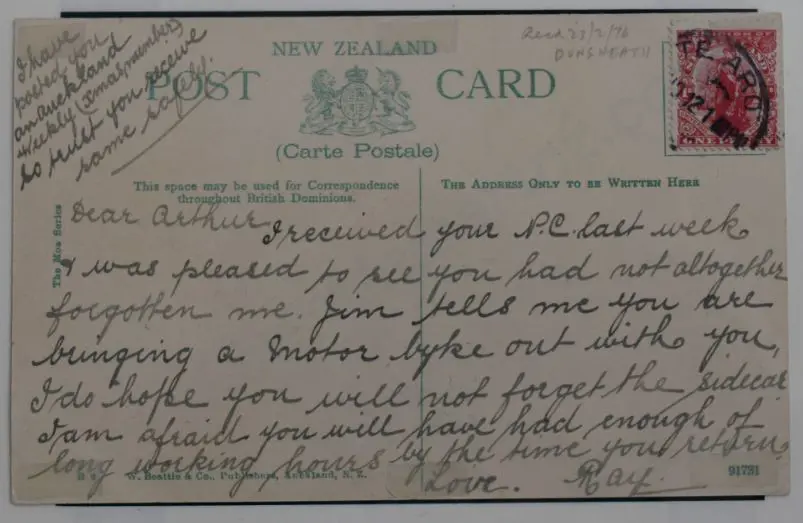 I have
posted you
an Auckland
Weekly (Xmas number)
so trust you receive
same safely.
Recd 23/2/76
DUNSHEATH
NEW ZEALAND
POST CARD
(Carte Postale)
TE ARO
This space may be used for Correspondence
throughout British Dominions.
THE ADDRESS ONLY TO BE WRITTEN HERE
The Moa Series
Dear Arthur
I received your P.C. last week
& was pleased to see you had not altogether
forgotten me. Jim tells me you are
bringing a Motor byke out with you,
I do hope you will not forget the sidecar
I am afraid you will have had enough of
long working hours by the time you return.
Love. Ray.
W. Beattie & Co., Publishers, Auckland, N. Z.
91731